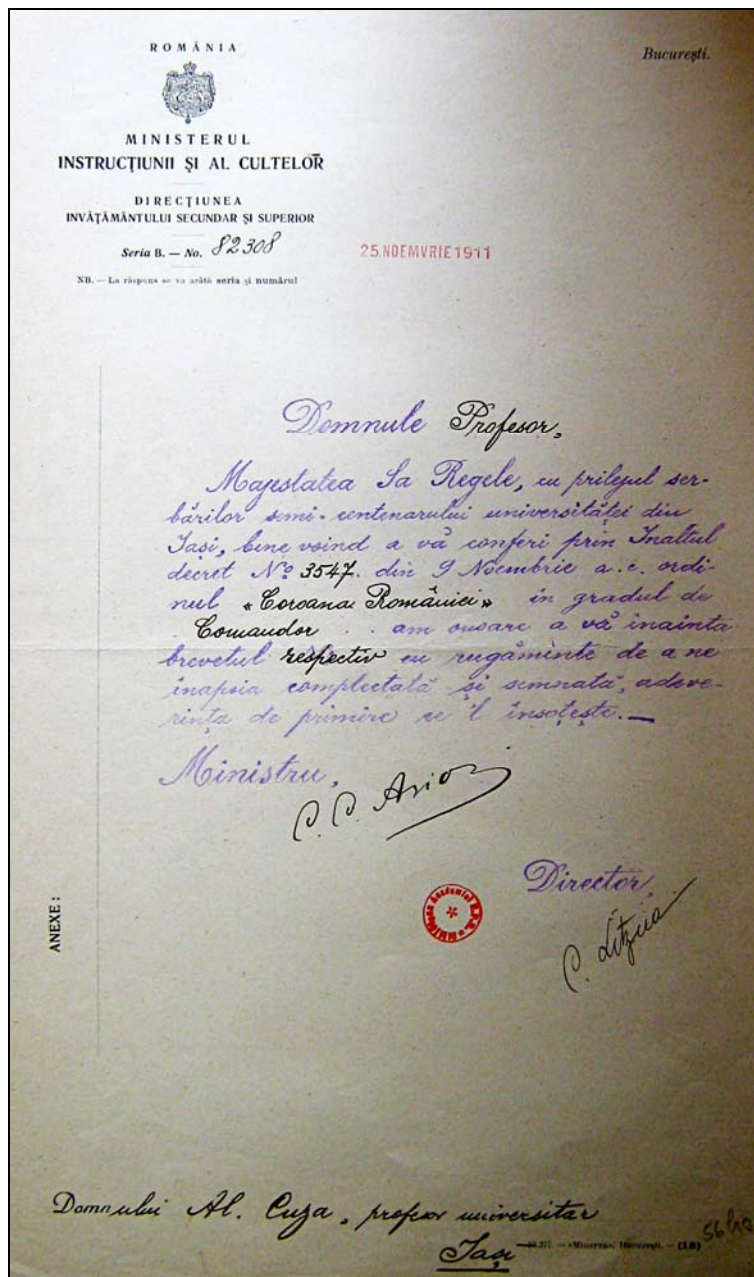 ROMÂNIA
București.
MINISTERUL
INSTRUCȚIUNII ȘI AL CULTELOR
DIRECȚIUNEA
INVĂȚĂMÂNTULUI SECUNDAR ȘI SUPERIOR
Seria B. — No. 82308
25.NOEMVRIE 1911
NB. — La răspuns se va arătà seria și numărul
Domnule Profesor,
Majestatea Sa Regele, cu prilejul ser-
bărilor semi-centenarului universităței din
Iași, bine voind a vă conferi prin Inaltul
decret Nº 3547. din 9 Noembrie a.c. ordi-
nul «Coroana României» in gradul de
Comandor am onoare a vă inainta
brevetul respectiv cu rugăminte de a ne
inapoia complectată și semnată, adeve-
rința de primire ce 'l însoțește.—
Ministru,
C. C. Arion
Director,
C. Litzica
ANEXE:
Domnului Al. Cuza, profesor universitar
Iași
«Minerva», București. — (18)